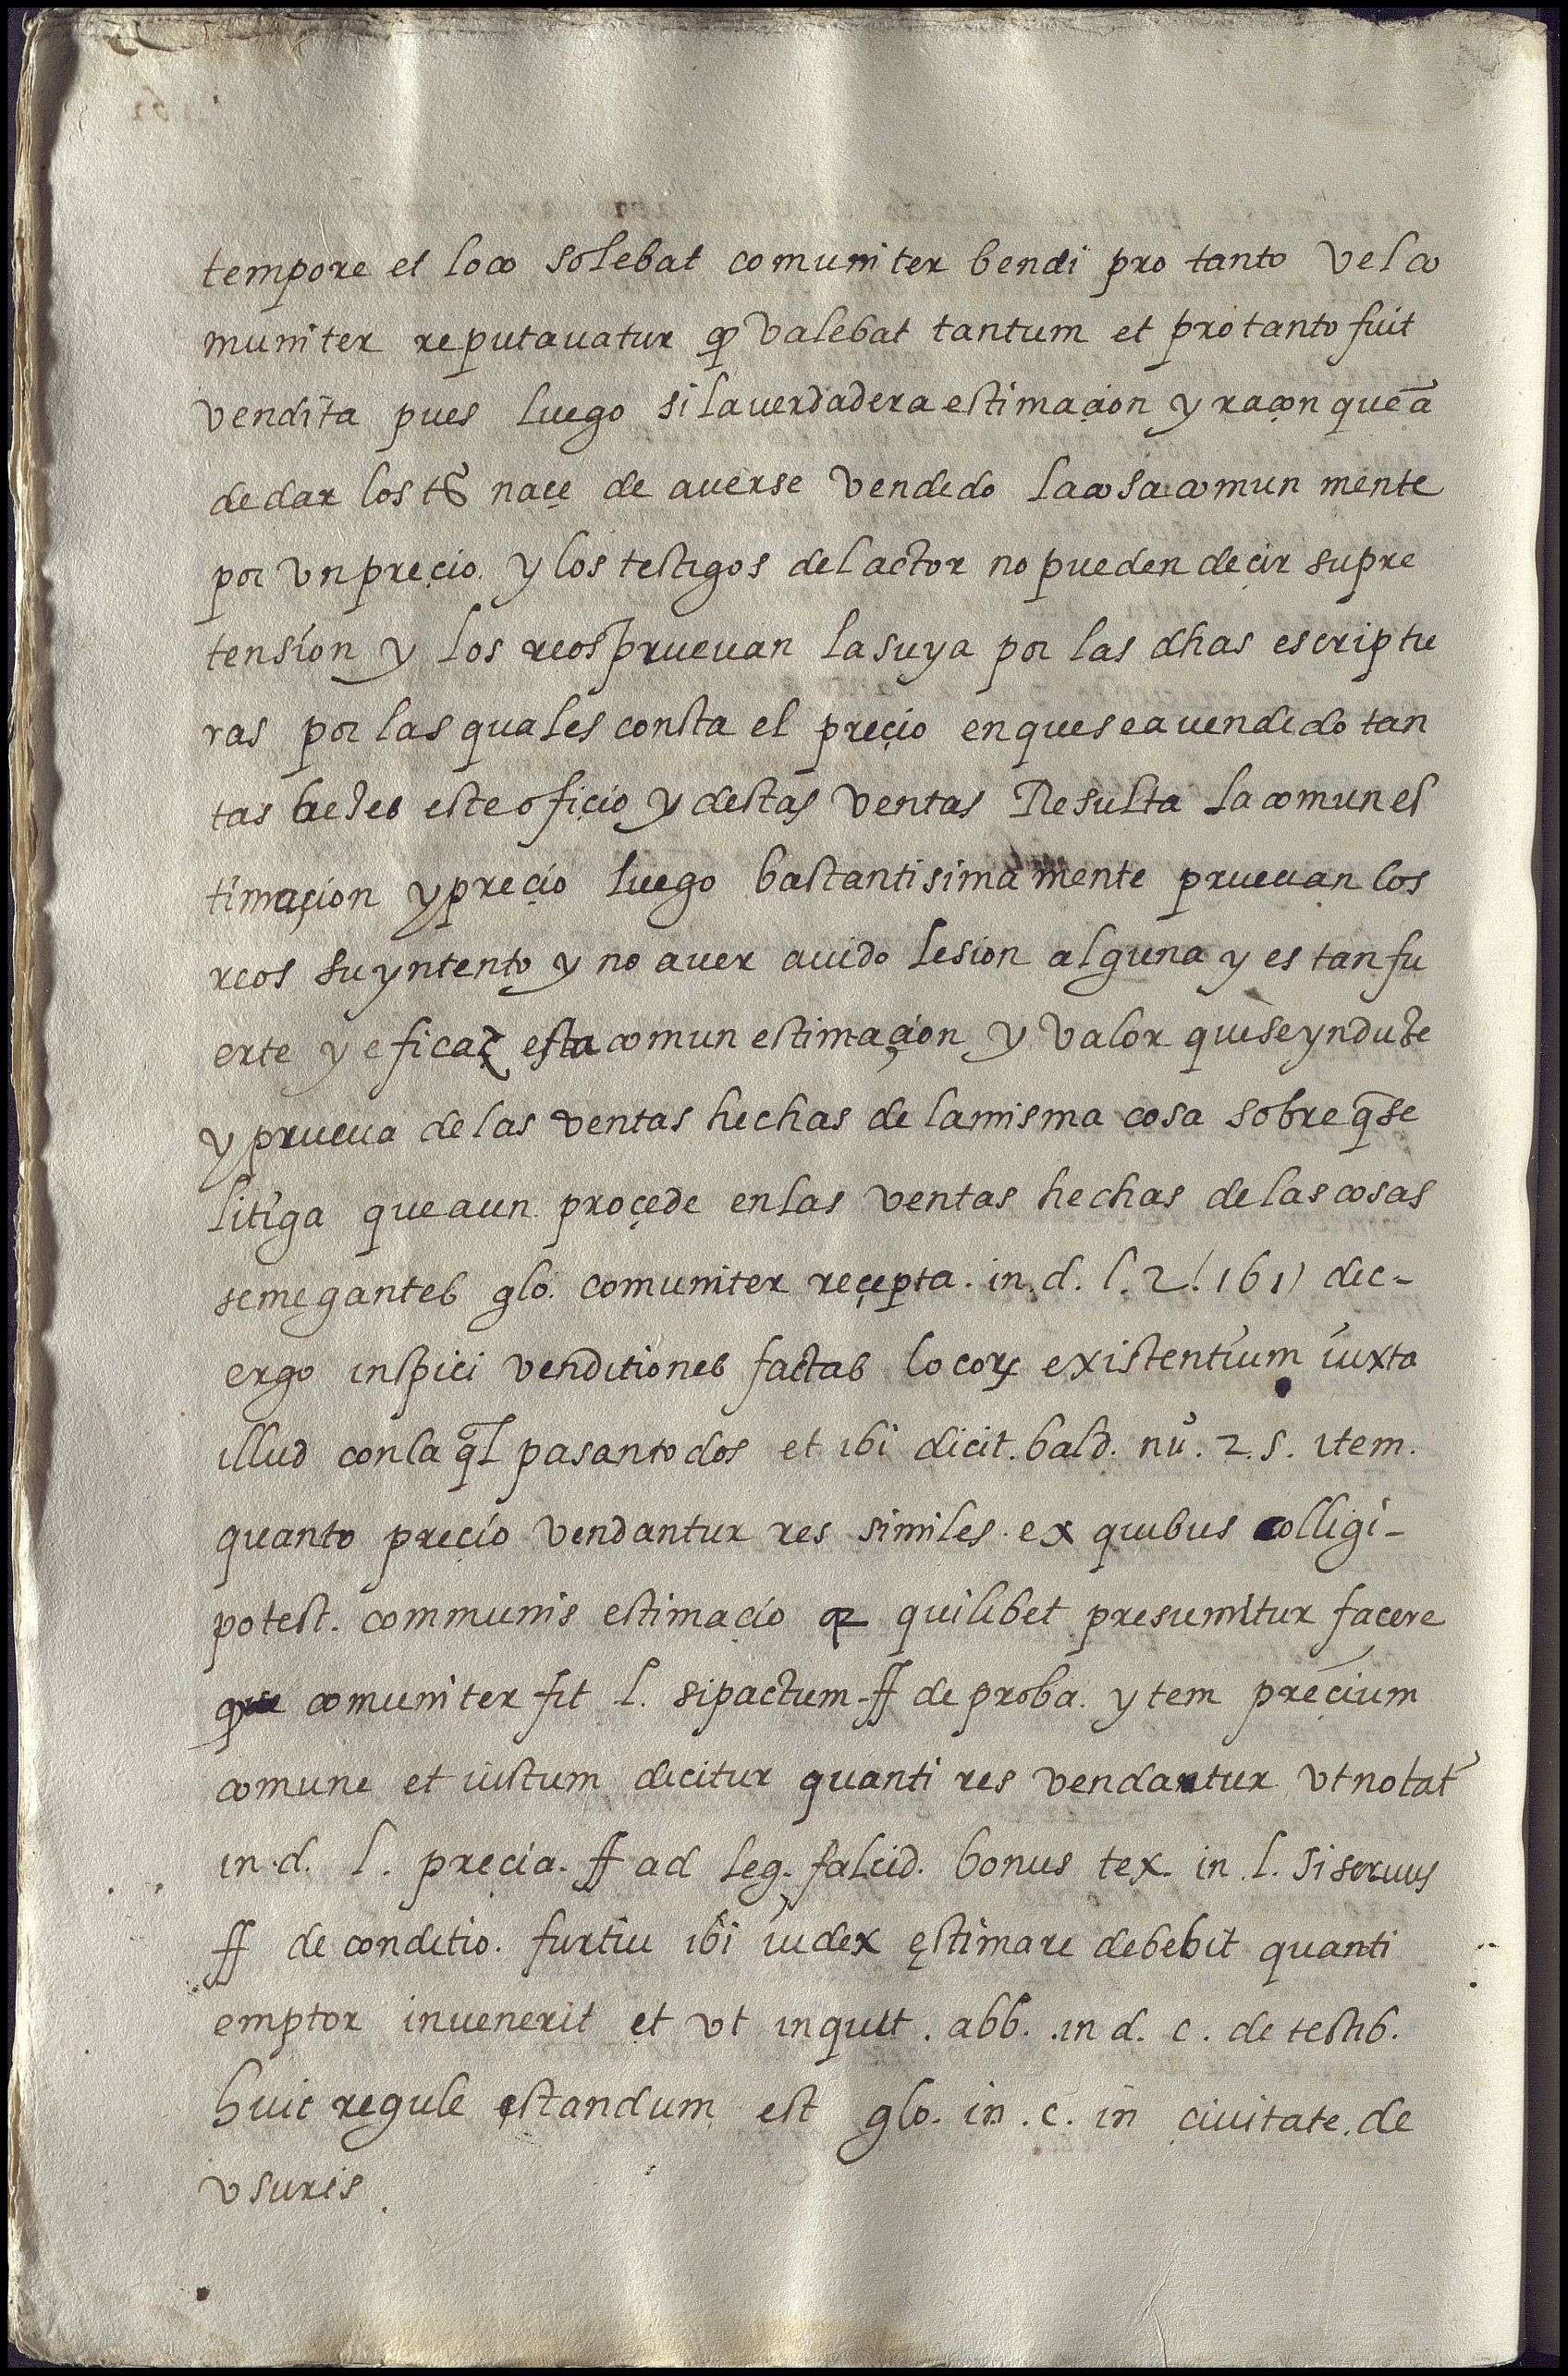 tempore et loco solebat comuniter bendi pro tanto vel co
muniter reputauatur q̃ valebat tantum et pro tanto fuit
vendita pues luego si la verdadera estimaçion y raçon que ã
de dar los tšs naçe de auerse vendido la cosa comun mente
por vn preçio. y los testigos del actor no pueden deçir su pre
tension y los reos pruevan la suya por las dhas escriptu
ras por las quales consta el preçio en que se a vendido tan
tas beçes este ofiçio y destas ventas Resulta la comun es
timaçion y preçio luego bastantisima mente pruevan los
reos su yntento y no auer auido lesion alguna y es tan fu
erte y eficaz esta comun estimaçion y valor que se ynduçe
y prueua de las ventas hechas de la misma cosa sobre q̃ se
litiga que aun proçede en las ventas hechas de las cosas
semegantes glo. comuniter reçepta. in. d. l. 2. (ibi) dec-
ergo inspici venditiones factas locorꝝ existentium iuxta
illud con la q̃l pasan todos et ibi dicit. bald. nũ. 2. s. item.
quanto preçio vendantur res similes. ex quibus colligi-
potest. communis estimaçio q̃ quilibet presumitur facere
que comuniter fit l. si pactum. ff de proba. ytem preçium
comune et iustum dicitur quanti res vendantur vt notat̃
in. d. l. precia. ff ad leg. falcid. bonus tex. in. l. si seruus
ff de conditio. furtiu ibi iudex ęstimare debebit quanti
emptor inuenerit et vt inquit. abb. in d. c. de testib.
huic regule estandum est glo. in. c. in çiuitate. de
vsuris.